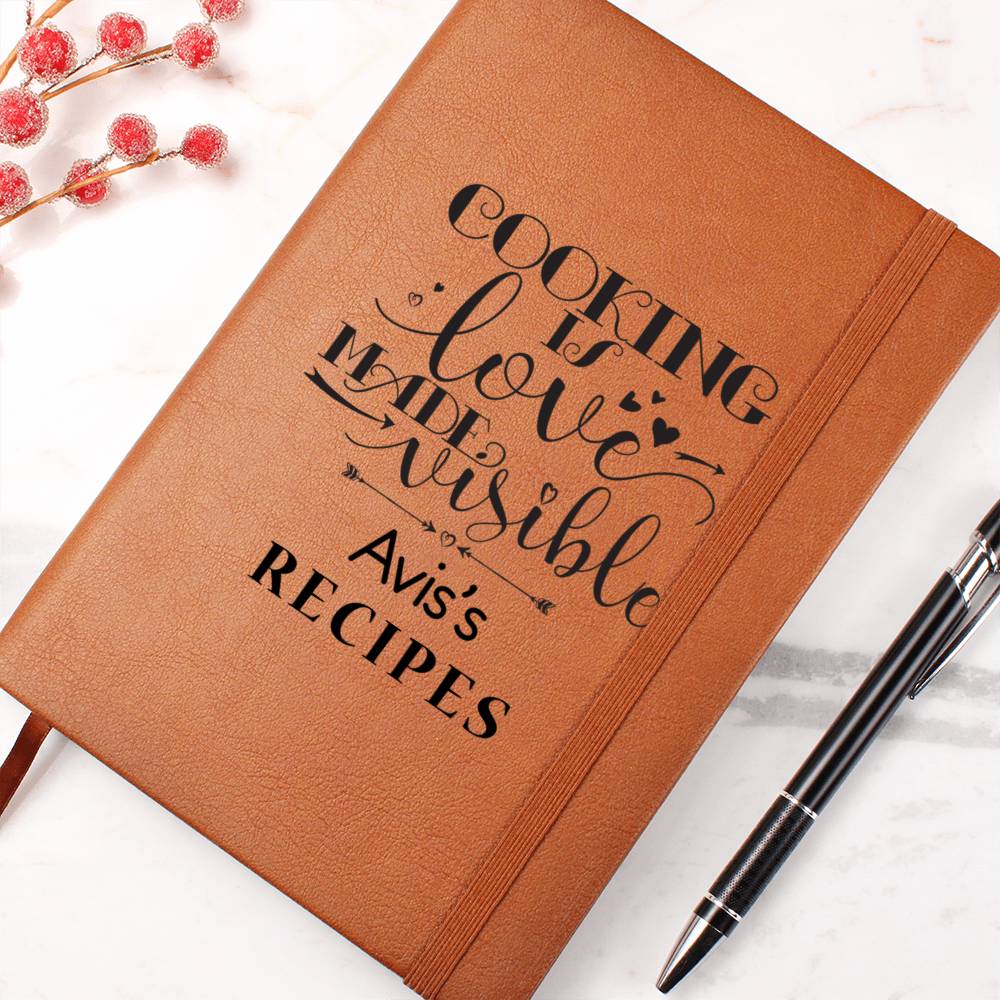 COOKING
IS
love
MADE
visible
Avis's
RECIPES